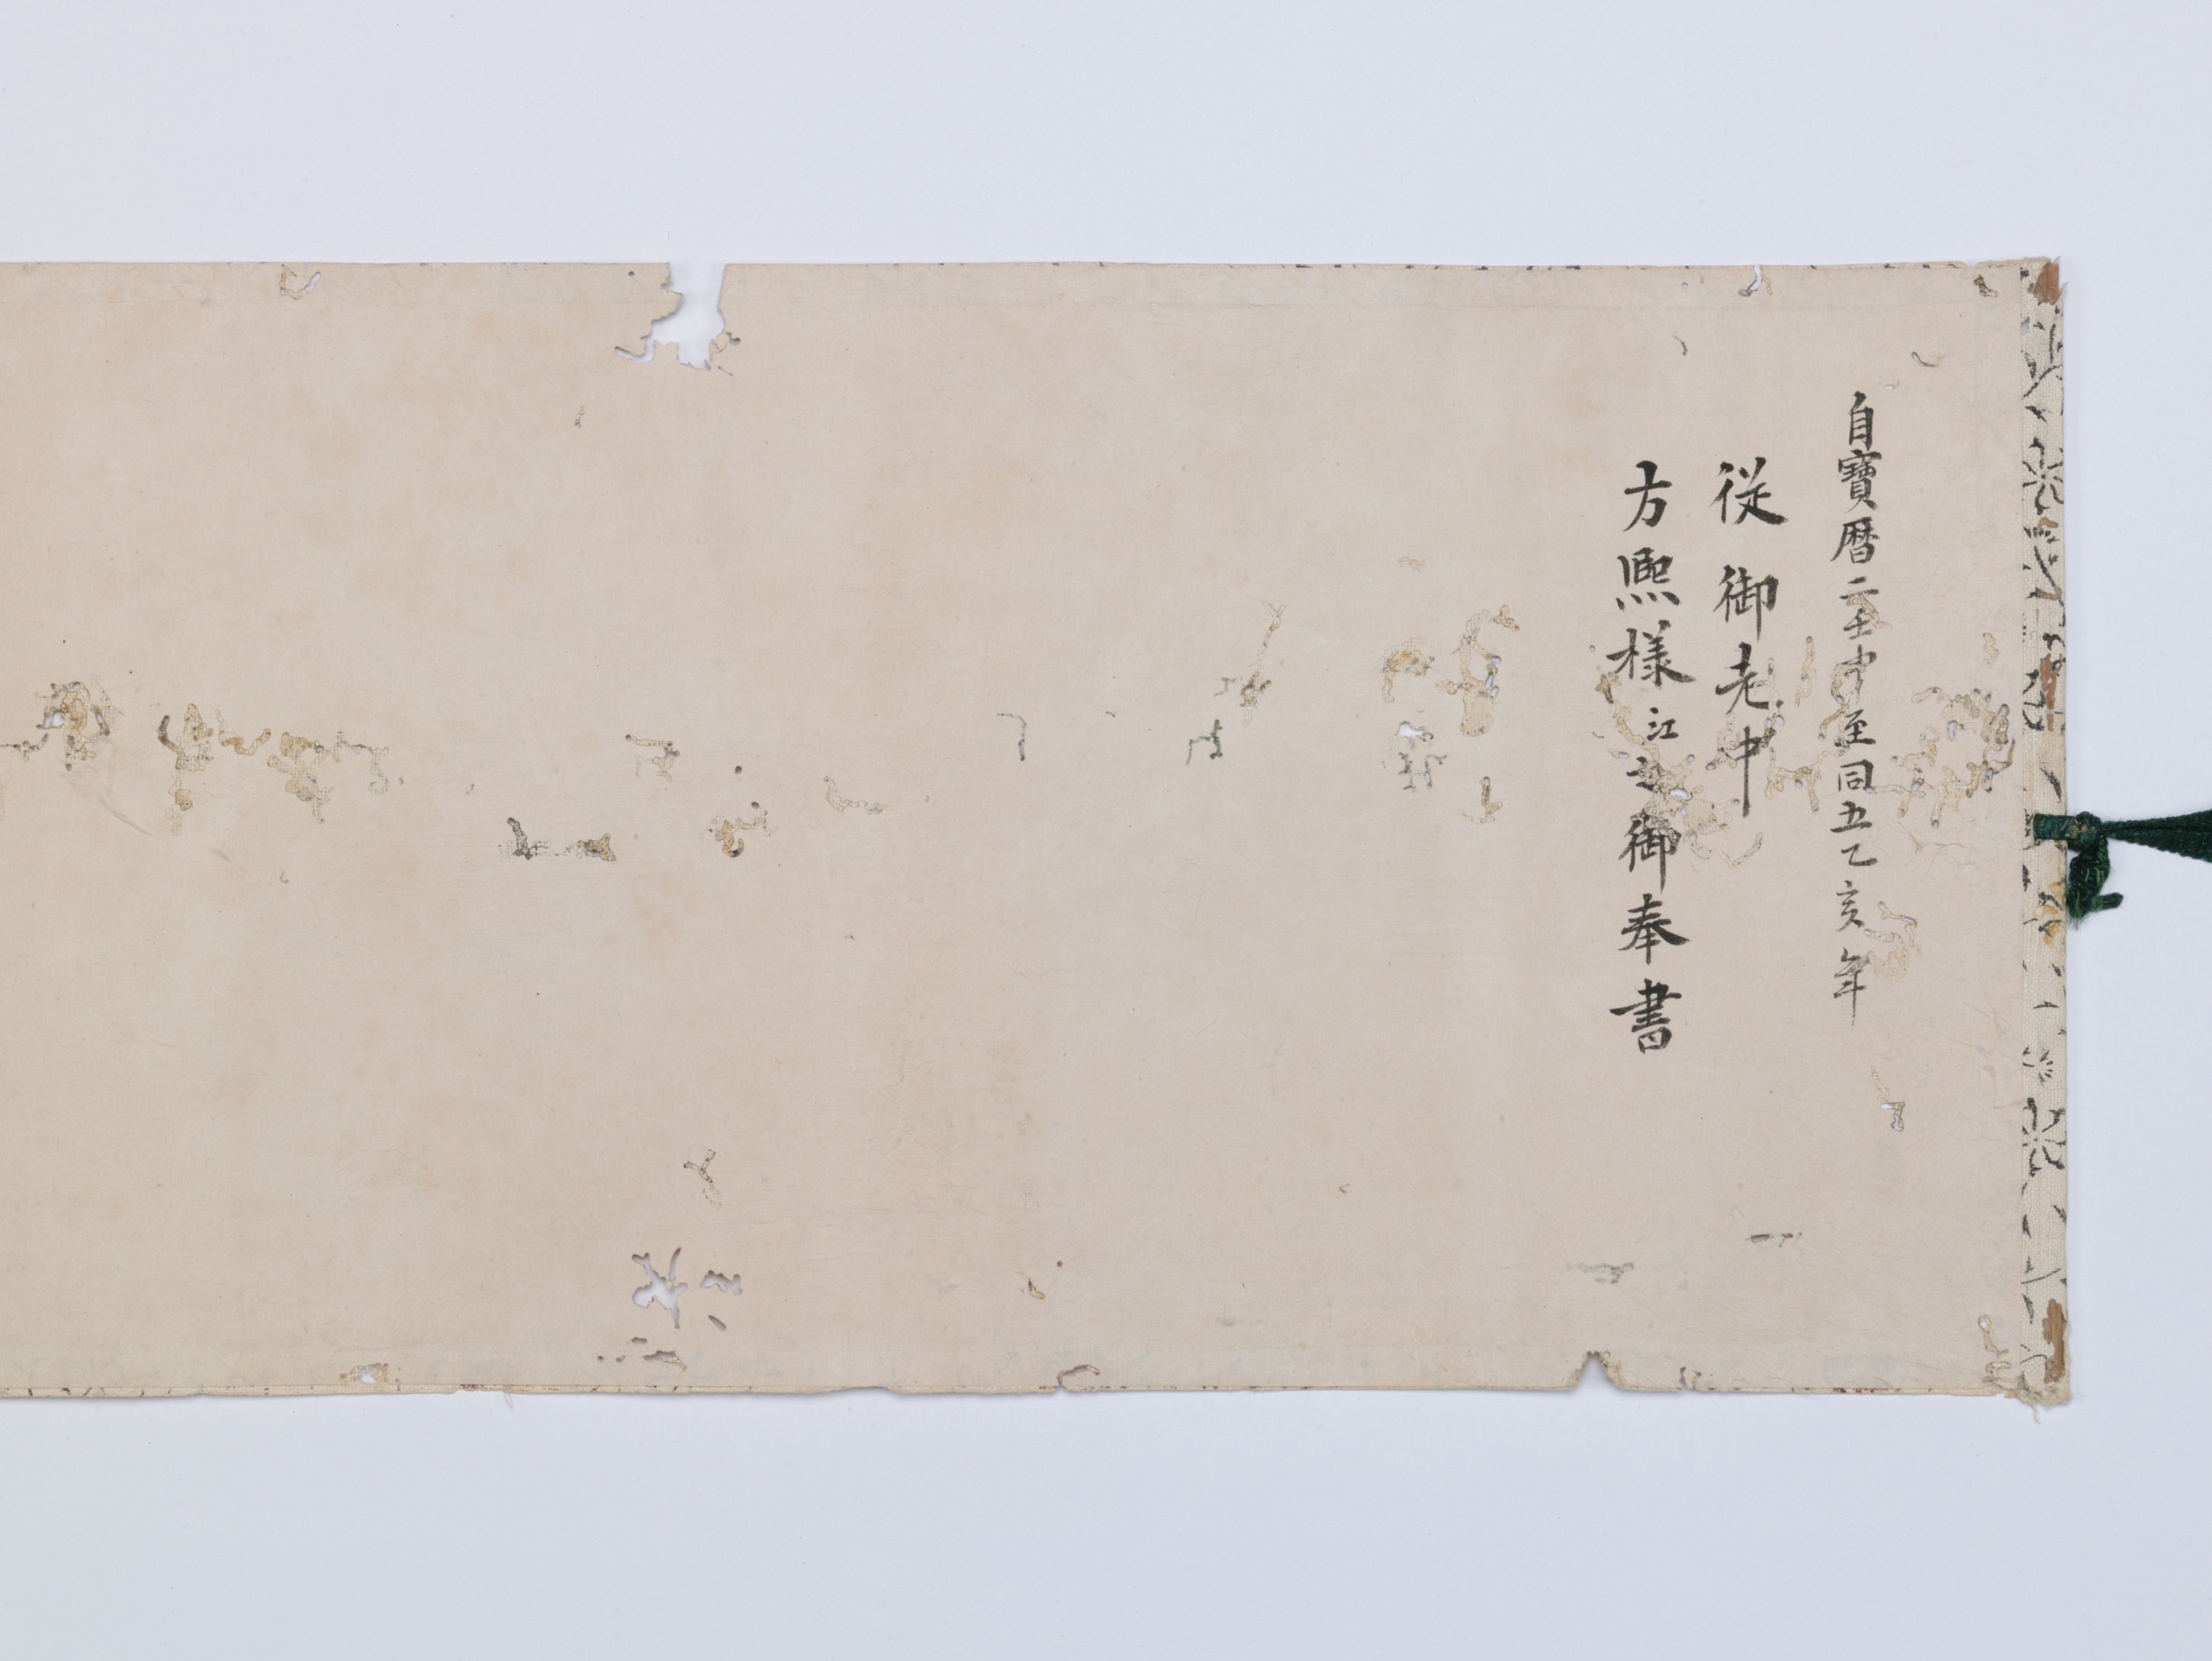 自寶暦二壬申至同五乙亥年
従御老中
方熈様江之御奉書